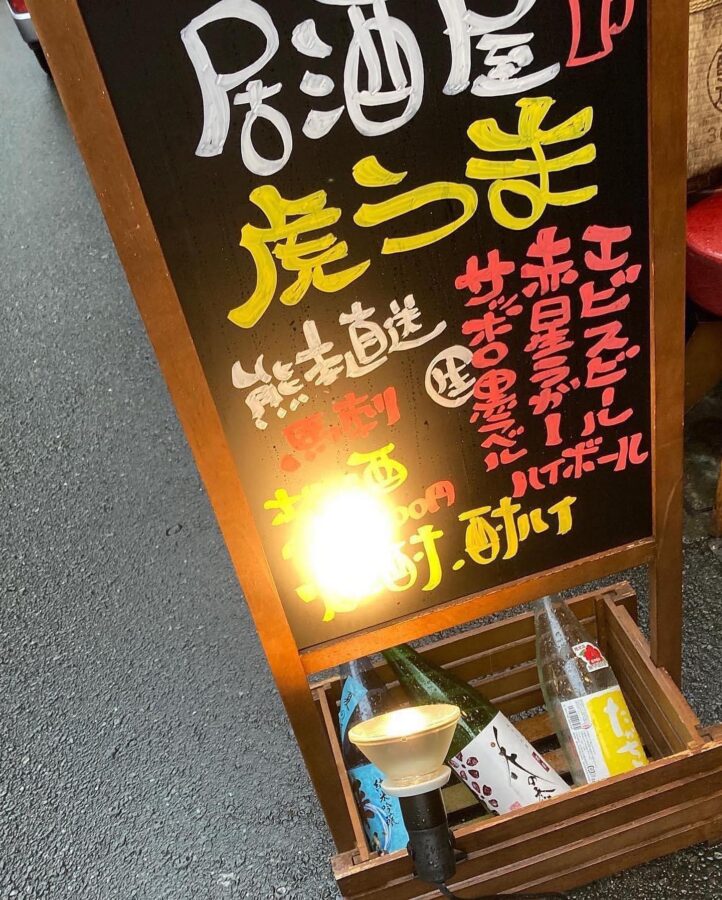 居酒屋
虎うま
エビスビール
赤星ラガー
サッポロ黒ラベル
生
ハイボール
熊本直送
馬刺
酒
00円
酎、酎ハイ
純米吟醸